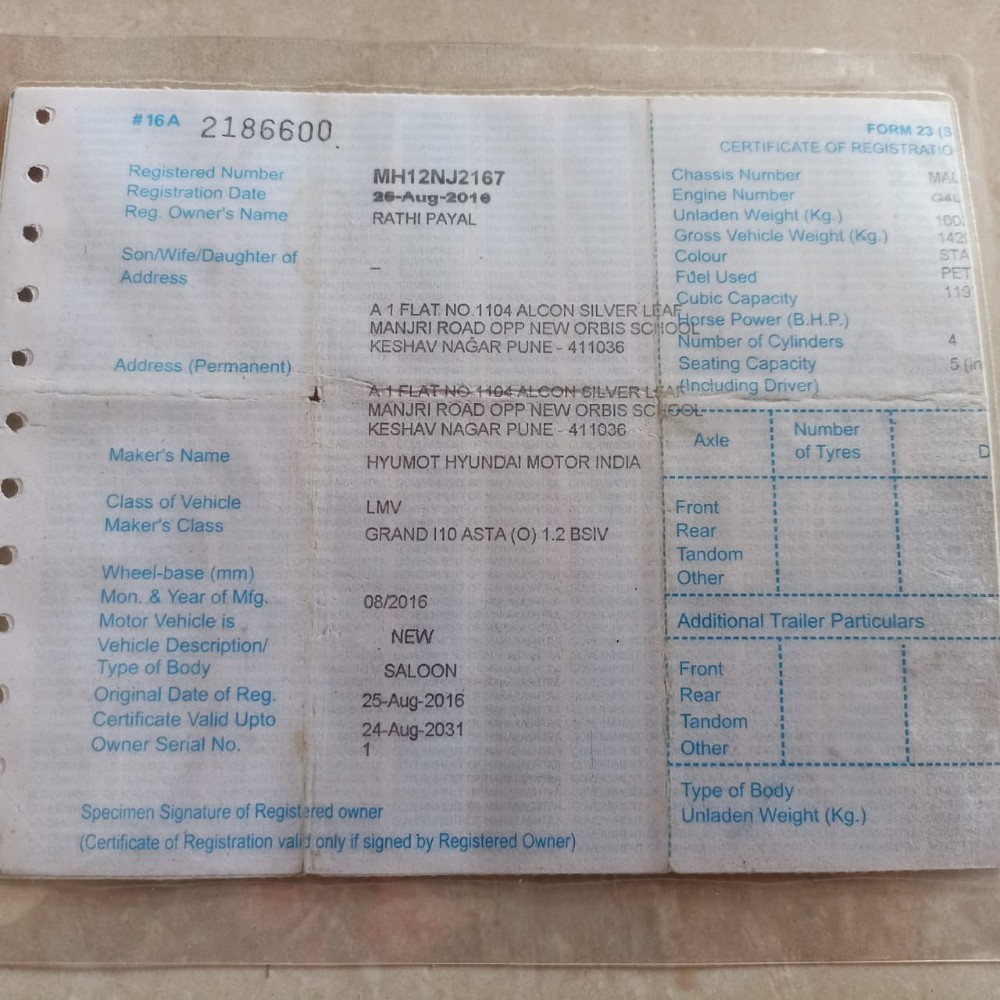 #16A 2186600
Registered Number MH12NJ2167
Registration Date 25-Aug-2016
Reg. Owner's Name RATHI PAYAL
Son/Wife/Daughter of
Address –
A 1 FLAT NO.1104 ALCON SILVER LEAF
MANJRI ROAD OPP NEW ORBIS SCHOOL
KESHAV NAGAR PUNE - 411036
Address (Permanent)
A 1 FLAT NO 1104 ALCON SILVER LEAF
MANJRI ROAD OPP NEW ORBIS SCHOOL
KESHAV NAGAR PUNE - 411036
Maker's Name HYUMOT HYUNDAI MOTOR INDIA
Class of Vehicle LMV
Maker's Class GRAND I10 ASTA (O) 1.2 BSIV
Wheel-base (mm)
Mon. & Year of Mfg. 08/2016
Motor Vehicle is NEW
Vehicle Description/
Type of Body SALOON
Original Date of Reg. 25-Aug-2016
Certificate Valid Upto 24-Aug-2031
Owner Serial No. 1
Specimen Signature of Registered owner
(Certificate of Registration valid only if signed by Registered Owner)
FORM 23 (S
CERTIFICATE OF REGISTRATIO
Chassis Number MAL
Engine Number G4L
Unladen Weight (Kg.) 100
Gross Vehicle Weight (Kg.) 142
Colour STA
Fuel Used PET
Cubic Capacity 119
Horse Power (B.H.P.)
Number of Cylinders 4
Seating Capacity 5 (in
(Including Driver)
Axle Number of Tyres D
Front
Rear
Tandom
Other
Additional Trailer Particulars
Front
Rear
Tandom
Other
Type of Body
Unladen Weight (Kg.)